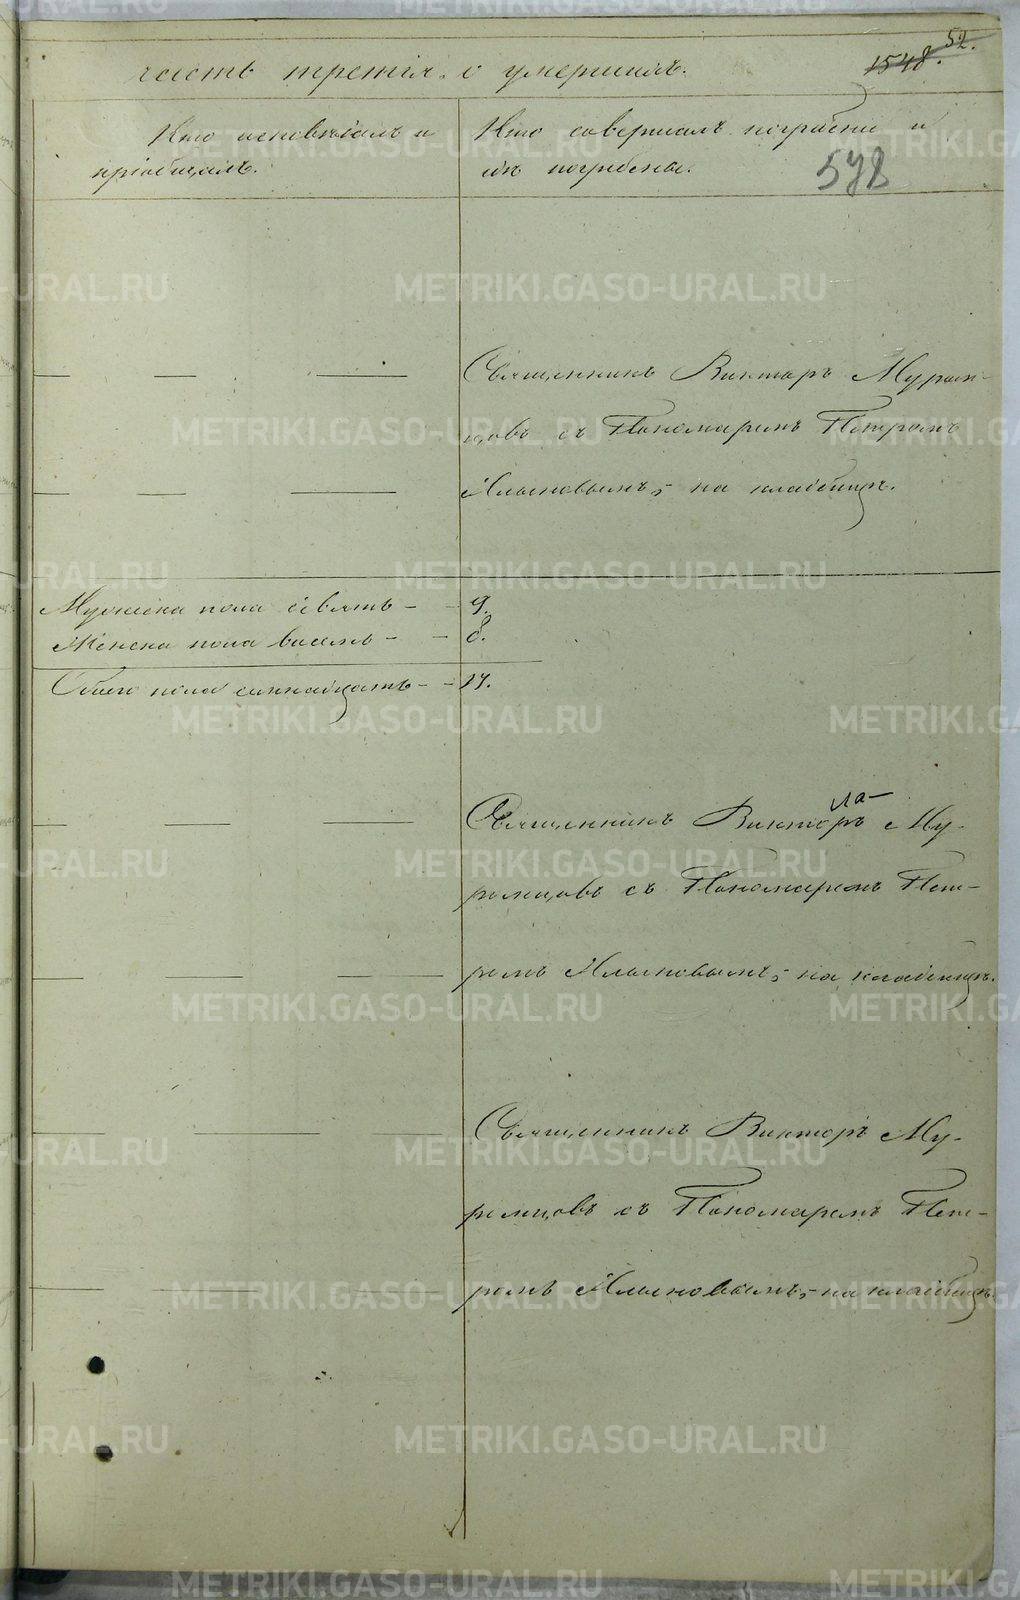 52.
1548.
часть третія, о умершихъ.
Кто исповѣдалъ и
пріобщалъ.
Кто совершалъ погребеніе и
гдѣ погребены.
578
Священникъ Викторъ Муром-
цовъ съ Пономаремъ Петромъ
на кладбищѣ.
Мужеска пола девять - - 9.
Женска пола восемь - - 8.
Обоего пола семнадцать - - 17.
Священникъ Викторъ Му-
ромцовъ съ Пономаремъ Пет-
ромъ на кладбищѣ.
Священникъ Викторъ Му-
ромцовъ съ Пономаремъ Пет-
ромъ на кладбищѣ.
METRIKI.GASO-URAL.RU